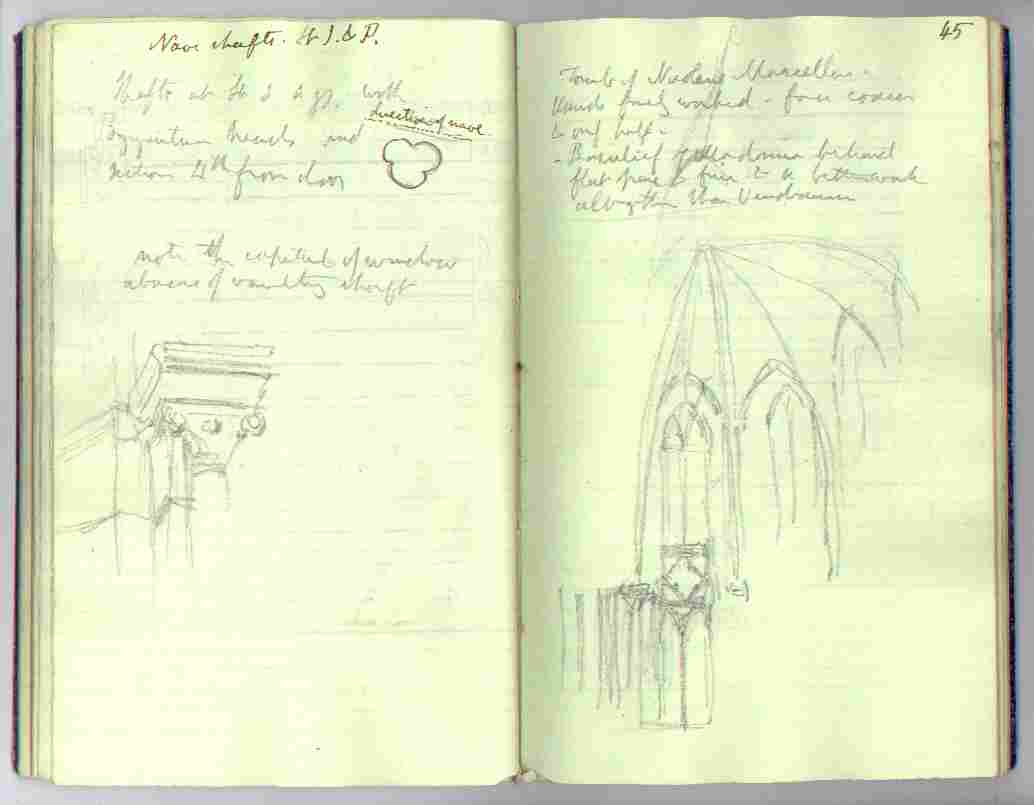 Nave shafts. St J. & P.
Shafts at St J & P, with
direction of nave
Byzantine heads and
section 4th from door
note the capital of window
above of vaulting shaft
45
Tomb of Nicolas Marcellus.
Hands finely worked - four
only half.
- Basrelief of Madonna behind
flat & fine & better work
altogether than Vendramin